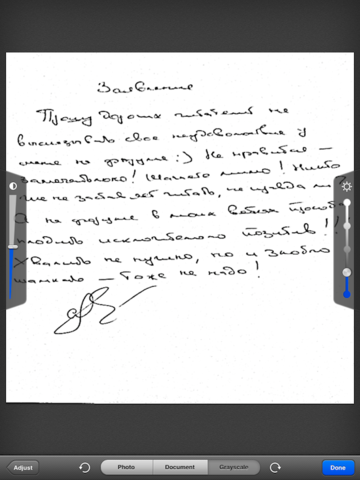 Заявление
Прошу дорогих читателей не
высказывать свое неудовольствие у
меня на форуме :) Не нравится —
замечательно! Шагайте мимо! Никто
же не заставляет читать, не правда ли?
А на форуме в моих ветках просьба
плодить исключительно позитив!!
Хвалить не нужно, но и злобно
шамкать — тоже не надо!
Adjust
Photo
Document
Grayscale
Done